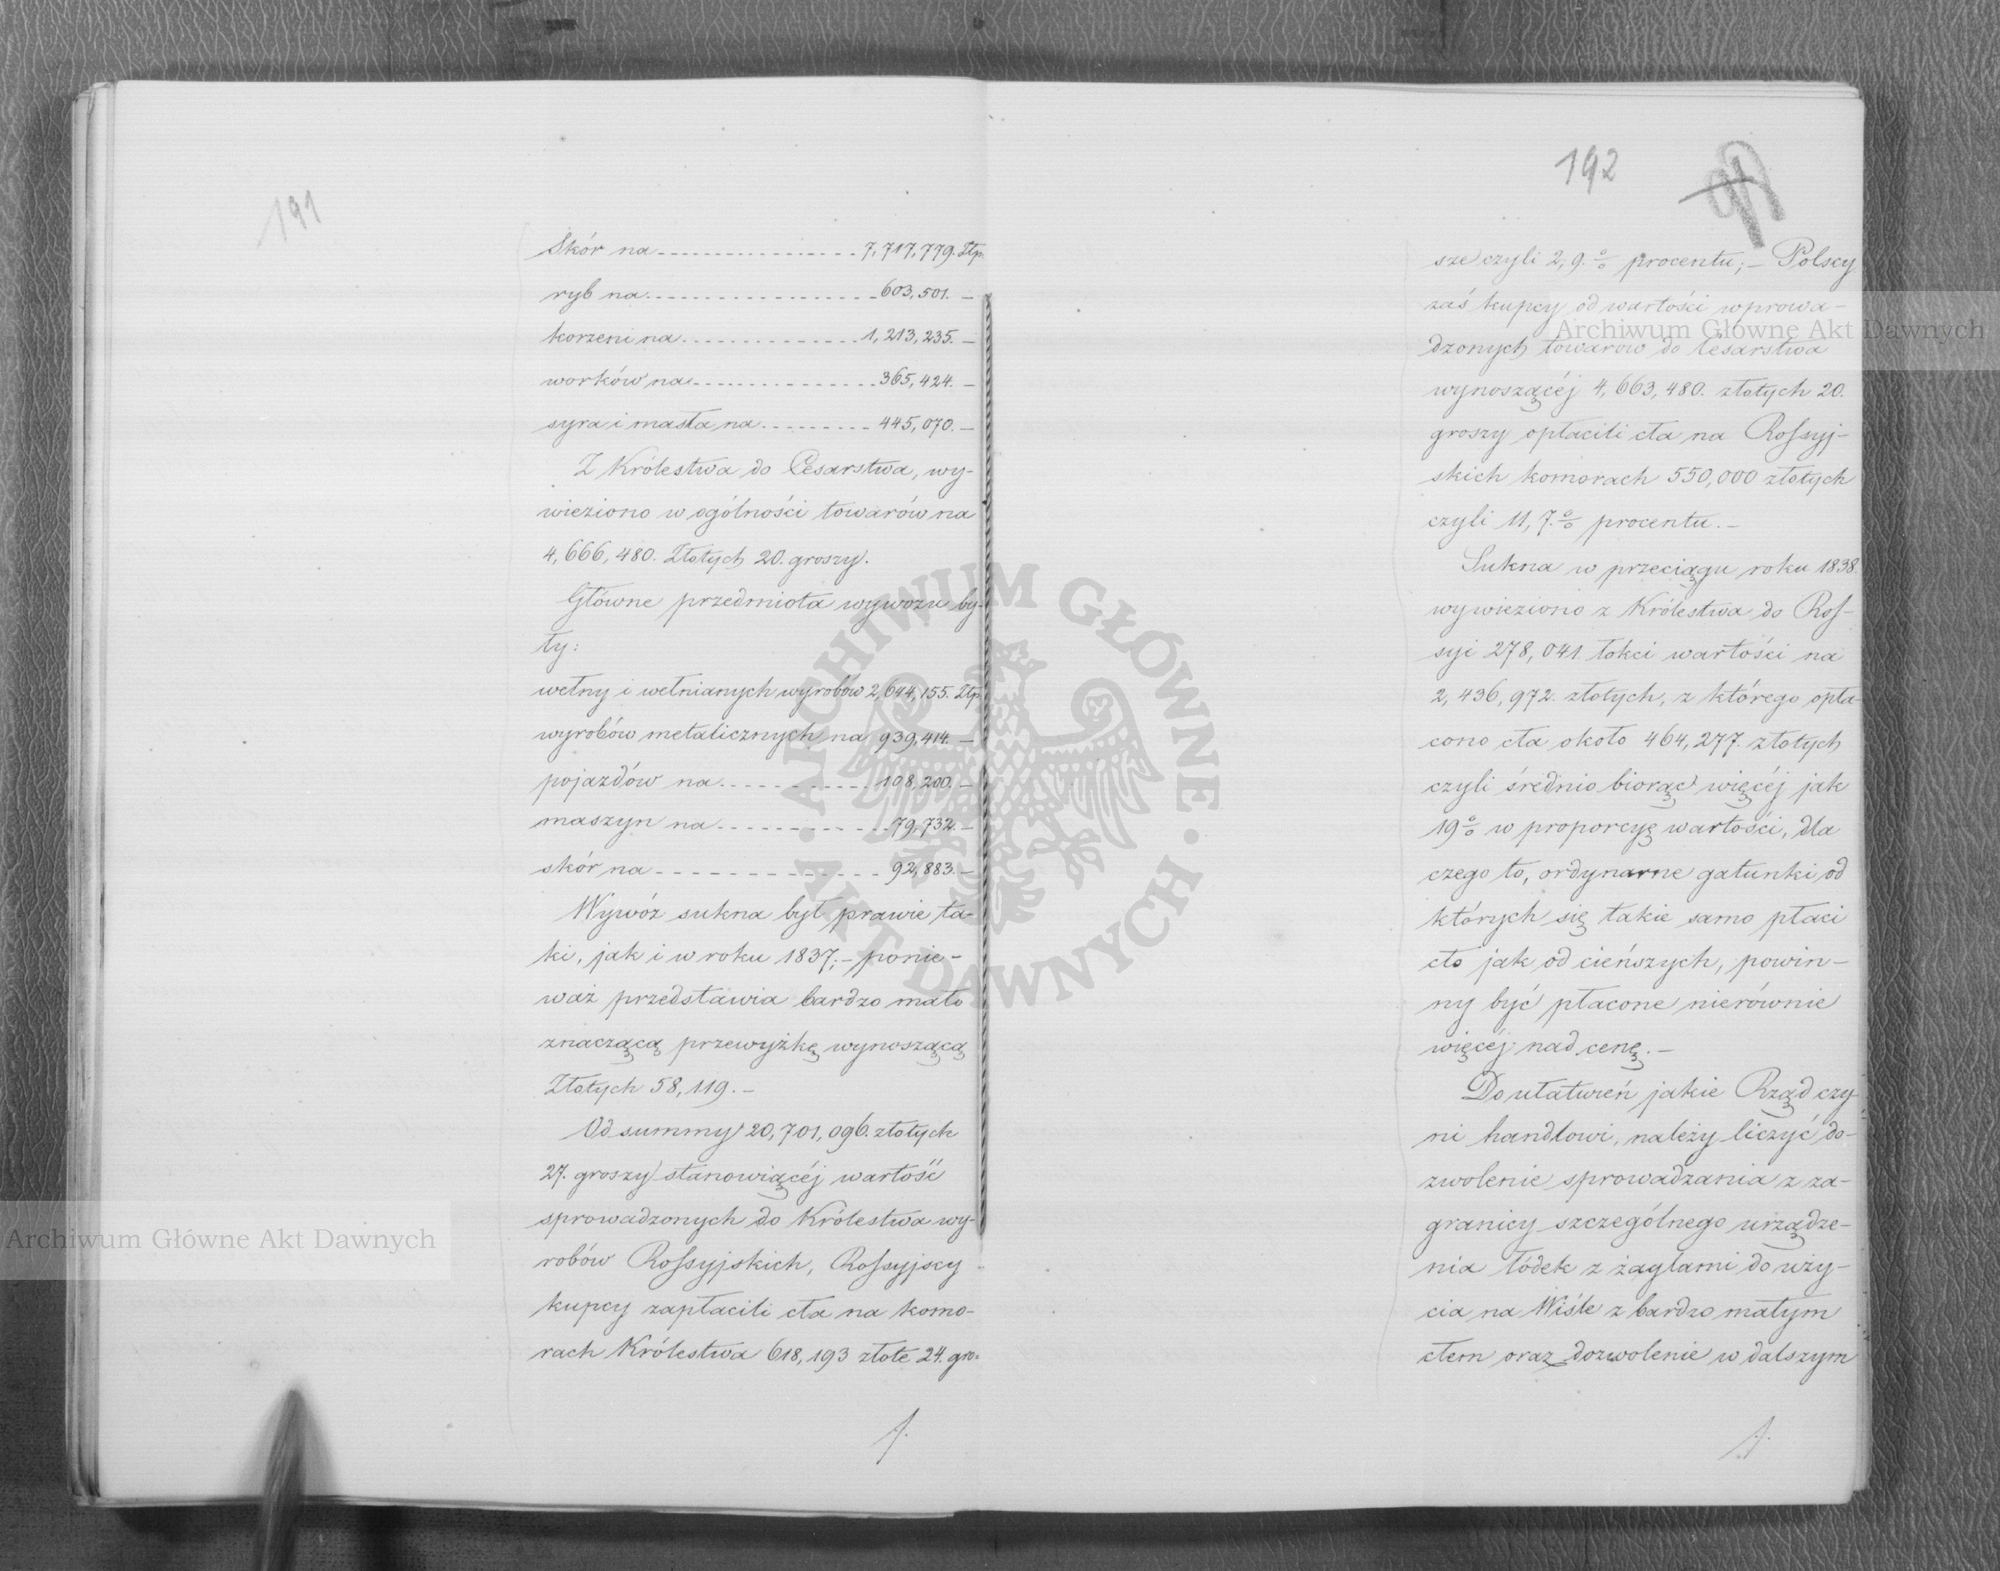 191
Skór na ---------------- 7,717,779. Złp.
ryb na ------------------- 603,501. —
korzeni na --------------- 1,213,235. —
worków na --------------- 365,424. —
syra i masła na --------- 445,070. —
Z Królestwa do Cesarstwa, wy-
wieziono w ogólności towarów na
4,666,480. Złotych 20. groszy.
Główne przedmiota wywozu by-
ły:
wełny i wełnianych wyrobów 2,644,155. Złp.
wyrobów metalicznych na 939,414. —
pojazdów na ------------ 108,200. —
maszyn na ------------- 79,732. —
skór na --------------- 92,883. —
Wywóz sukna był prawie ta-
ki, jak i w roku 1837; — ponie-
waż przedstawia bardzo mało
znaczącą przewyżkę wynoszącą
Złotych 58,119. —
Od summy 20,701,096. złotych
27. groszy stanowiącéj wartość
sprowadzonych do Królestwa wy-
robów Rossyjskich, Rossyjscy
kupcy zapłacili cła na komo-
rach Królestwa 618,193 złote 24. gro-
192
sze czyli 2,9. % procentu; — Polscy
zaś kupcy od wartości wprowa-
dzonych towarów do Cesarstwa
wynoszącéj 4,663,480. złotych 20.
groszy opłacili cła na Rossyj-
skich komorach 550,000 złotych
czyli 11,7. % procentu. —
Sukna w przeciągu roku 1838.
wywieziono z Królestwa do Ros-
syi 278,041 łokci wartości na
2,436,972. złotych, z którego opła-
cono cła około 464,277. złotych
czyli średnio biorąc więcéj jak
19 % w proporcyę wartości, dla
czego to, ordynarne gatunki od
których się takie samo płaci
cło jak od cieńszych, powin-
ny być płacone nierównie
więcéj nad cenę. —
Do ułatwień jakie Rząd czy-
ni handlowi, należy liczyć do-
zwolenie sprowadzania z za-
granicy szczególnego urządze-
nia łódek z żaglami do uży-
cia na Wiśle z bardzo małym
cłem oraz dozwolenie w dalszym
Archiwum Główne Akt Dawnych
Archiwum Główne Akt Dawnych
ARCHIWUM GŁÓWNE · AKT DAWNYCH ·